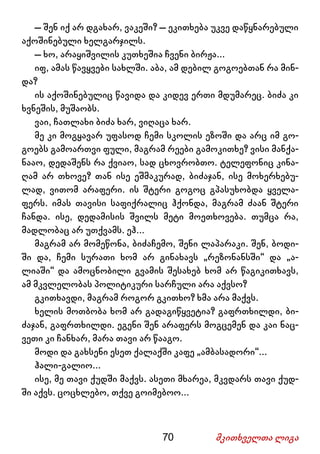 — შენ იქ არ დგახარ, ვაკეში? — ეკითხება უკვე დაწყნარებული
აქოშინებული ხელგარჯილს.
— ხო, არაყიშვილის კუთხეშია ჩვენი ბირჟა...
იფ, ამას წავყვები სახლში. აბა, ამ დებილ გოგოებთან რა მინ-
და?
ის აქოშინებულიც წავიდა და კიდევ ერთი მდუმარეც. ბიძა კი
ხვნეშის, მუშაობს.
ვაი, ჩათლახი ბიძა ხარ, ვიღაცა ხარ.
მე კი მოგყავარ უფასოდ ჩემი სკოლის ეზოში და არც იმ გო-
გოებს გამოართვი ფული, მაგრამ რეები გამოკითხე? ვისი მანქა-
ნააო, დედაშენს რა ქვიაო, სად ცხოვრობთო. ტელეფონიც კინა-
ღამ არ თხოვე? თან ისე ეშმაკურად, ბიძაჯან, ისე მოხერხებუ-
ლად, ვითომ არაფერი. ის შტერი გოგოც გპასუხობდა ყველა-
ფერს. იმას თავისი საფიქრალიც ჰქონდა, მაგრამ ძაან შტერი
ჩანდა. ისე, დედამისის შვილს მეტი მოეთხოვება. თუმცა რა,
მადლობაც არ უთქვამს. ეჰ...
მაგრამ არ მომეწონა, ბიძაჩემო, შენი ლაპარაკი. შენ, ბოდი-
ში და, ჩემი სურათი ხომ არ გინახავს „რეზონანსში“ და „ა-
ლიაში“ და ამოცნობილი გვამის შესახებ ხომ არ წაგიკითხავს,
ამ მკვლელობას პოლიტიკური სარჩული არა აქვსო?
გკითხავდი, მაგრამ როგორ გკითხო? ხმა არა მაქვს.
ხელის მოთბობა ხომ არ გადაგიწყვეტია? გაფრთხილდი, ბი-
ძაჯან, გაფრთხილდი. ეგენი შენ არაფერს მოგცემენ და კაი ნაც-
ვეთი კი ჩანხარ, მარა თავი არ წააგო.
მოდი და გახსენი ესეთ ქალაქში კაფე „ამბასადორი“...
ჰალი-გალიო...
ისე, მე თავი ქუდში მაქვს. ასეთი მხარეა, მკვდარს თავი ქუდ-
ში აქვს. ცოცხლებო, თქვე გოიმებოო...
70 მკითხველთა ლიგა